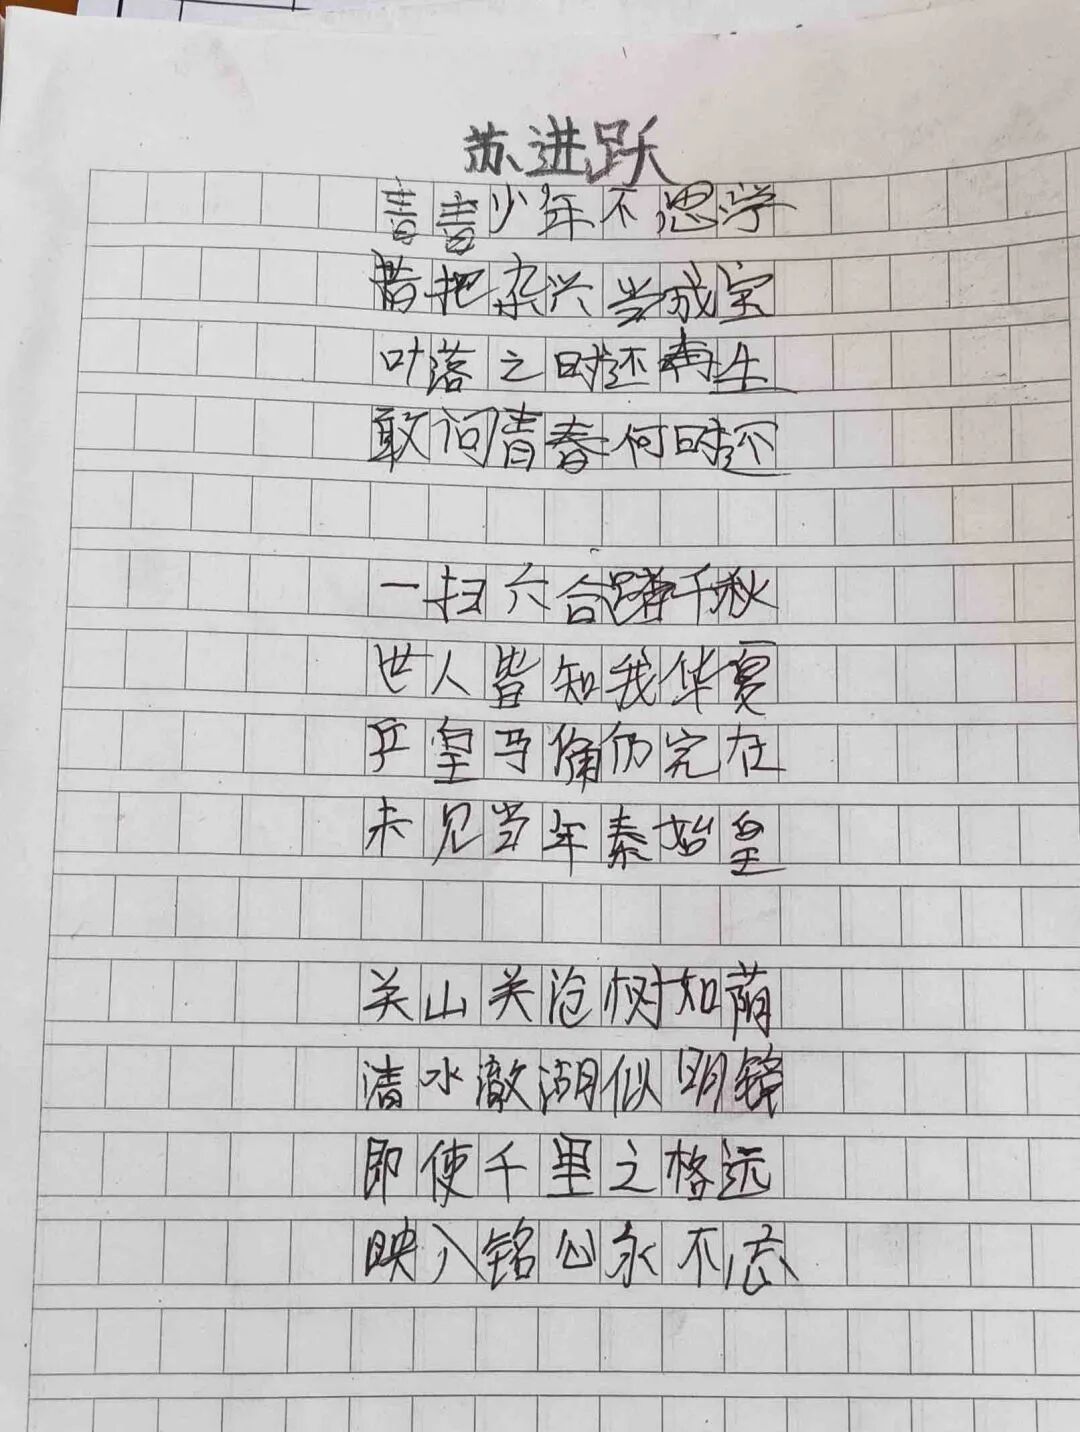 苏进跃
少年不思学
昔把杂兴当成宝
叶落之时还再生
敢问青春何时还
一扫六合踏千秋
世人皆知我华夏
兵皇马俑仍完在
未见当年秦始皇
关山关沧树如荫
清水澈湖似明镜
即使千里之格远
映入铭心永不忘